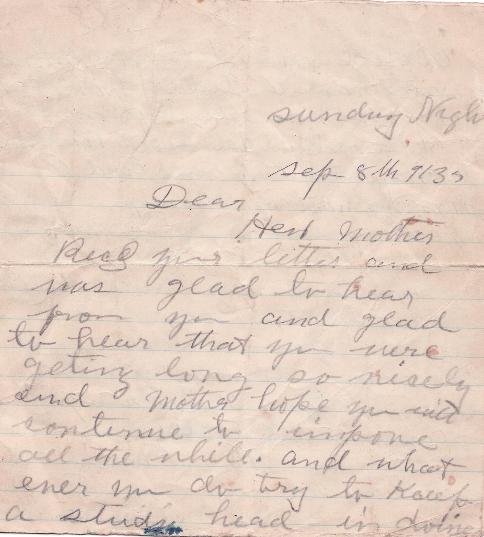 sunday Nigh
sep 8th 
Dear
Mother
Recd your letter and
was glad to hear
from you and glad
to hear that you were
geting long so nisely
and Mother hope you will
contenue to impove
all the while. and what
ever you do try to Kaeep
a study head in doing